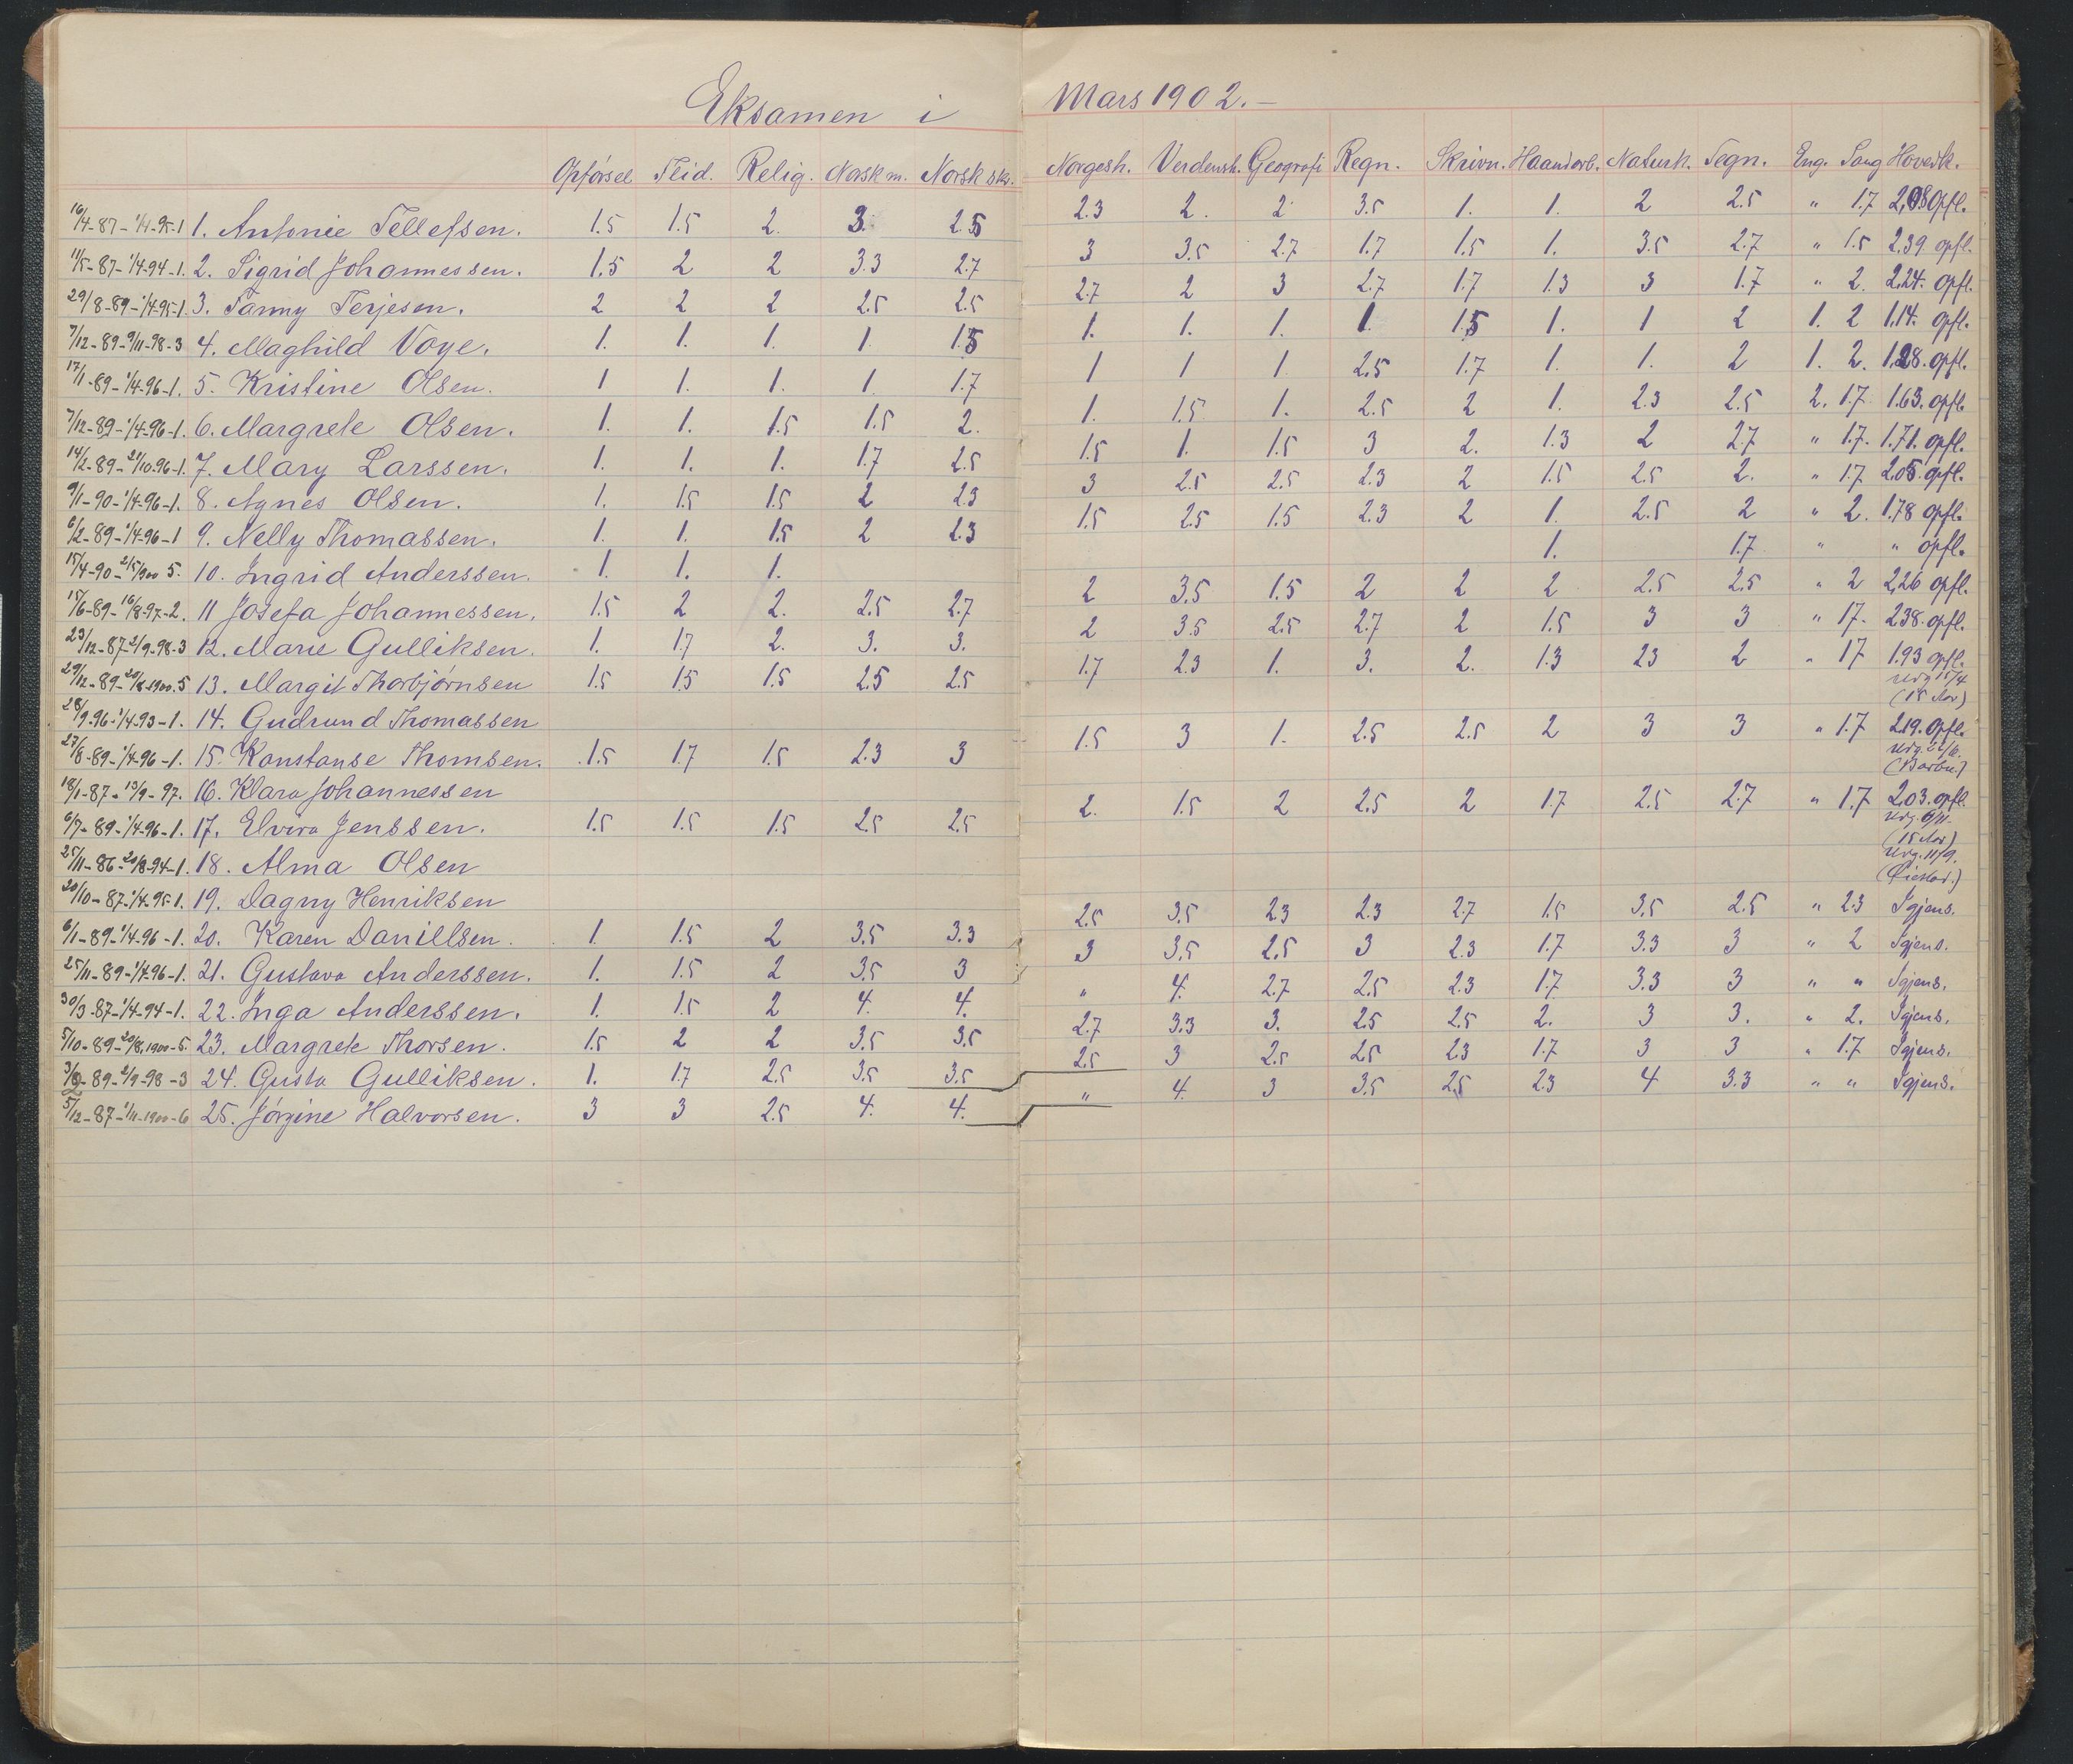 Eksamen i Mars 1902.-
Opførsel Flid. Relig. Norsk m. Norsk skr. Norgesh. Verdensh. Geografi Regn. Skrivn. Haandarb. Naturk. Tegn. Eng. Sang Hovedk.
16/4-87-1/4-95-1 1. Antonie Tellefsen. 1.5 1.5 2. 3. 2.5 2.3 2. 2 3.5 1. 1. 2 2.5 " 1.7 2,08 Opfl.
11/5-87-1/4-94-1. 2. Sigrid Johannessen. 1.5 2 2 3.3 2.7 3 3.5 2.7 1.7 1.5 1. 3.5 2.7 " 1.5 2.39 opfl.
29/8-89-1/4-95-1. 3. Fanny Terjesen. 2 2 2 2.5 2.5 2.7 2 3 2.7 1.7 1.3 3 1.7 " 2. 2.24. opfl.
7/12-89-9/11-98-3 4. Maghild Voye. 1. 1. 1. 1. 1.5 1. 1. 1. 1. 1.5 1. 1 2 1. 2 1.14. opfl.
17/1-89-1/4-96-1. 5. Kristine Olsen. 1 1. 1. 1. 1.7 1 1 1. 2.5 1.7 1. 1. 2 1. 2. 1.28. opfl.
7/12-89-1/4-96-1. 6. Margrete Olsen. 1. 1. 1.5 1.5 2. 1. 1.5 1. 2.5 2 1. 2.3 2.5 2. 1.7 1.63. opfl.
14/2-89-21/10-96-1. 7. Mary Larssen. 1. 1. 1. 1.7 2.5 1.5 1. 1.5 3 2. 1.3 2 2.7 " 1.7. 1.71. opfl.
9/1-90-1/4-96-1. 8. Agnes Olsen. 1. 1.5 1.5 2 2.3 3 2.5 2.5 2.3 2 1.5 2.5 2. " 1.7 2.05. opfl.
6/2-89-1/4-96-1 9. Nelly Thomassen. 1. 1. 1.5 2 2.3 1.5 2.5 1.5 2.3 2 1. 2.5 2 " 2. 1.78 opfl.
15/4-90-2/5/900 5. 10. Ingrid Anderssen. 1. 1. 1. 1. 1.7 " " opfl.
15/6-89-16/8-97-2. 11 Josefa Johannessen. 1.5 2 2. 2.5 2.7 2 3.5 1.5 2 2 2 2.5 2.5 " 2 2,26 opfl.
23/12-87-2/9-98-3 12. Marie Gulliksen. 1. 1.7 2. 3. 3. 2 3.5 2.5 2.7 2 1.5 3 3 " 1.7. 2.38. opfl.
29/12-89-20/8-1900-5 13. Margit Thorbjørnsen 1.5 1.5 1.5 2.5 2.5 1.7 2.3 1. 3. 2. 1.3 2.3 2 " 1.7 1.93 opfl.
28/9-96-1/4-93-1. 14. Gudrund Thomassen
27/8-89-1/4-96-1. 15. Konstanse Thomsen. 1.5 1.7 1.5 2.3 3 1.5 3 1. 2.5 2.5 2 3 3 " 1.7 2.19. Opfl.
18/1-87-13/9-97. 16. Klara Johannessen (Barbu.)
6/7-89-1/4-96-1. 17. Elvira Jenssen. 1.5 1.5 1.5 2.5 2.5 2. 1.5 2 2.5 2 1.7 2.5 2.7 " 1.7 2,03. opfl.
25/11-86-20/8-94-1. 18. Alma Olsen
20/10-87-1/4-95-1. 19. Dagny Henriksen
6/1-89-1/4-96-1. 20. Karen Daniellsen. 1. 1.5 2 3.5 3.3 2.5 3.5 2.3 2.3 2.7 1.5 3.5 2.5 " 2.3 Igjens.
25/11-89-1/4-96-1. 21. Gustava Anderssen. 1. 1.5 2 3.5 3 3 3.5 2.5 3 2.3 1.7 3.3 3 " 2 Igjens.
30/3-87-1/4-94-1. 22. Inga Anderssen. 1. 1.5 2 4. 4. " 4. 2.7 2.5 2.3 1.7 3.3 3 " " Igjens.
5/10-89-20/8.1900-5. 23. Margrete Thorsen. 1.5 2 2 3.5 3.5 2.7 3.3 3. 2.5 2.5 2. 3 3. " 2. Igjens.
3/9-89-2/9-98-3 24. Gusta Gulliksen. 1. 1.7 2.5 3.5 3.5 2.5 3 2.5 2.5 2.3 1.7 3 3 " 1.7 Igjens.
5/12-87-1/11-1900-6 25. Jørgine Halvorsen. 3 3 2.5 4. 4. " 4. 3 3.5 2.5 2.3 4 3.3 " " Igjens.